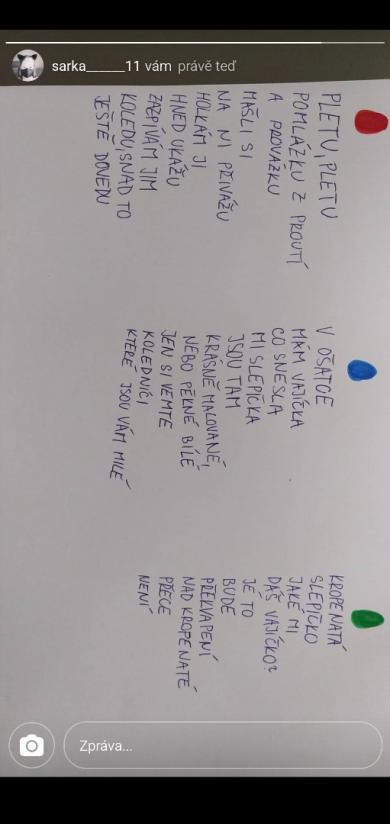 sarka______11 vám právě teď
PLETU, PLETU
POMLÁZKU Z PROUTÍ
A PROVÁZKU
MAŠLI SI
NA NI PŘIVÁŽU
HOLKÁM JI
HNED UKÁŽU
ZAZPÍVÁM JIM
KOLEDU, SNAD TO
JEŠTĚ DOVEDU
V OŠATCE
MÁM VAJÍČKA
CO SNESLA
MI SLEPIČKA
JSOU TAM
KRÁSNĚ MALOVANÉ,
NEBO PĚKNĚ BÍLÉ
JEN SI VEMTE
KOLEDNÍCI
KTERÉ JSOU VÁM MILÉ
KROPENATÁ
SLEPIČKO
JAKÉ MI
DÁŠ VAJÍČKO?
JÉ TO
BUDE
PŘEKVAPENÍ
NAD KROPENATÉ
PŘECE
NENÍ
Zpráva...